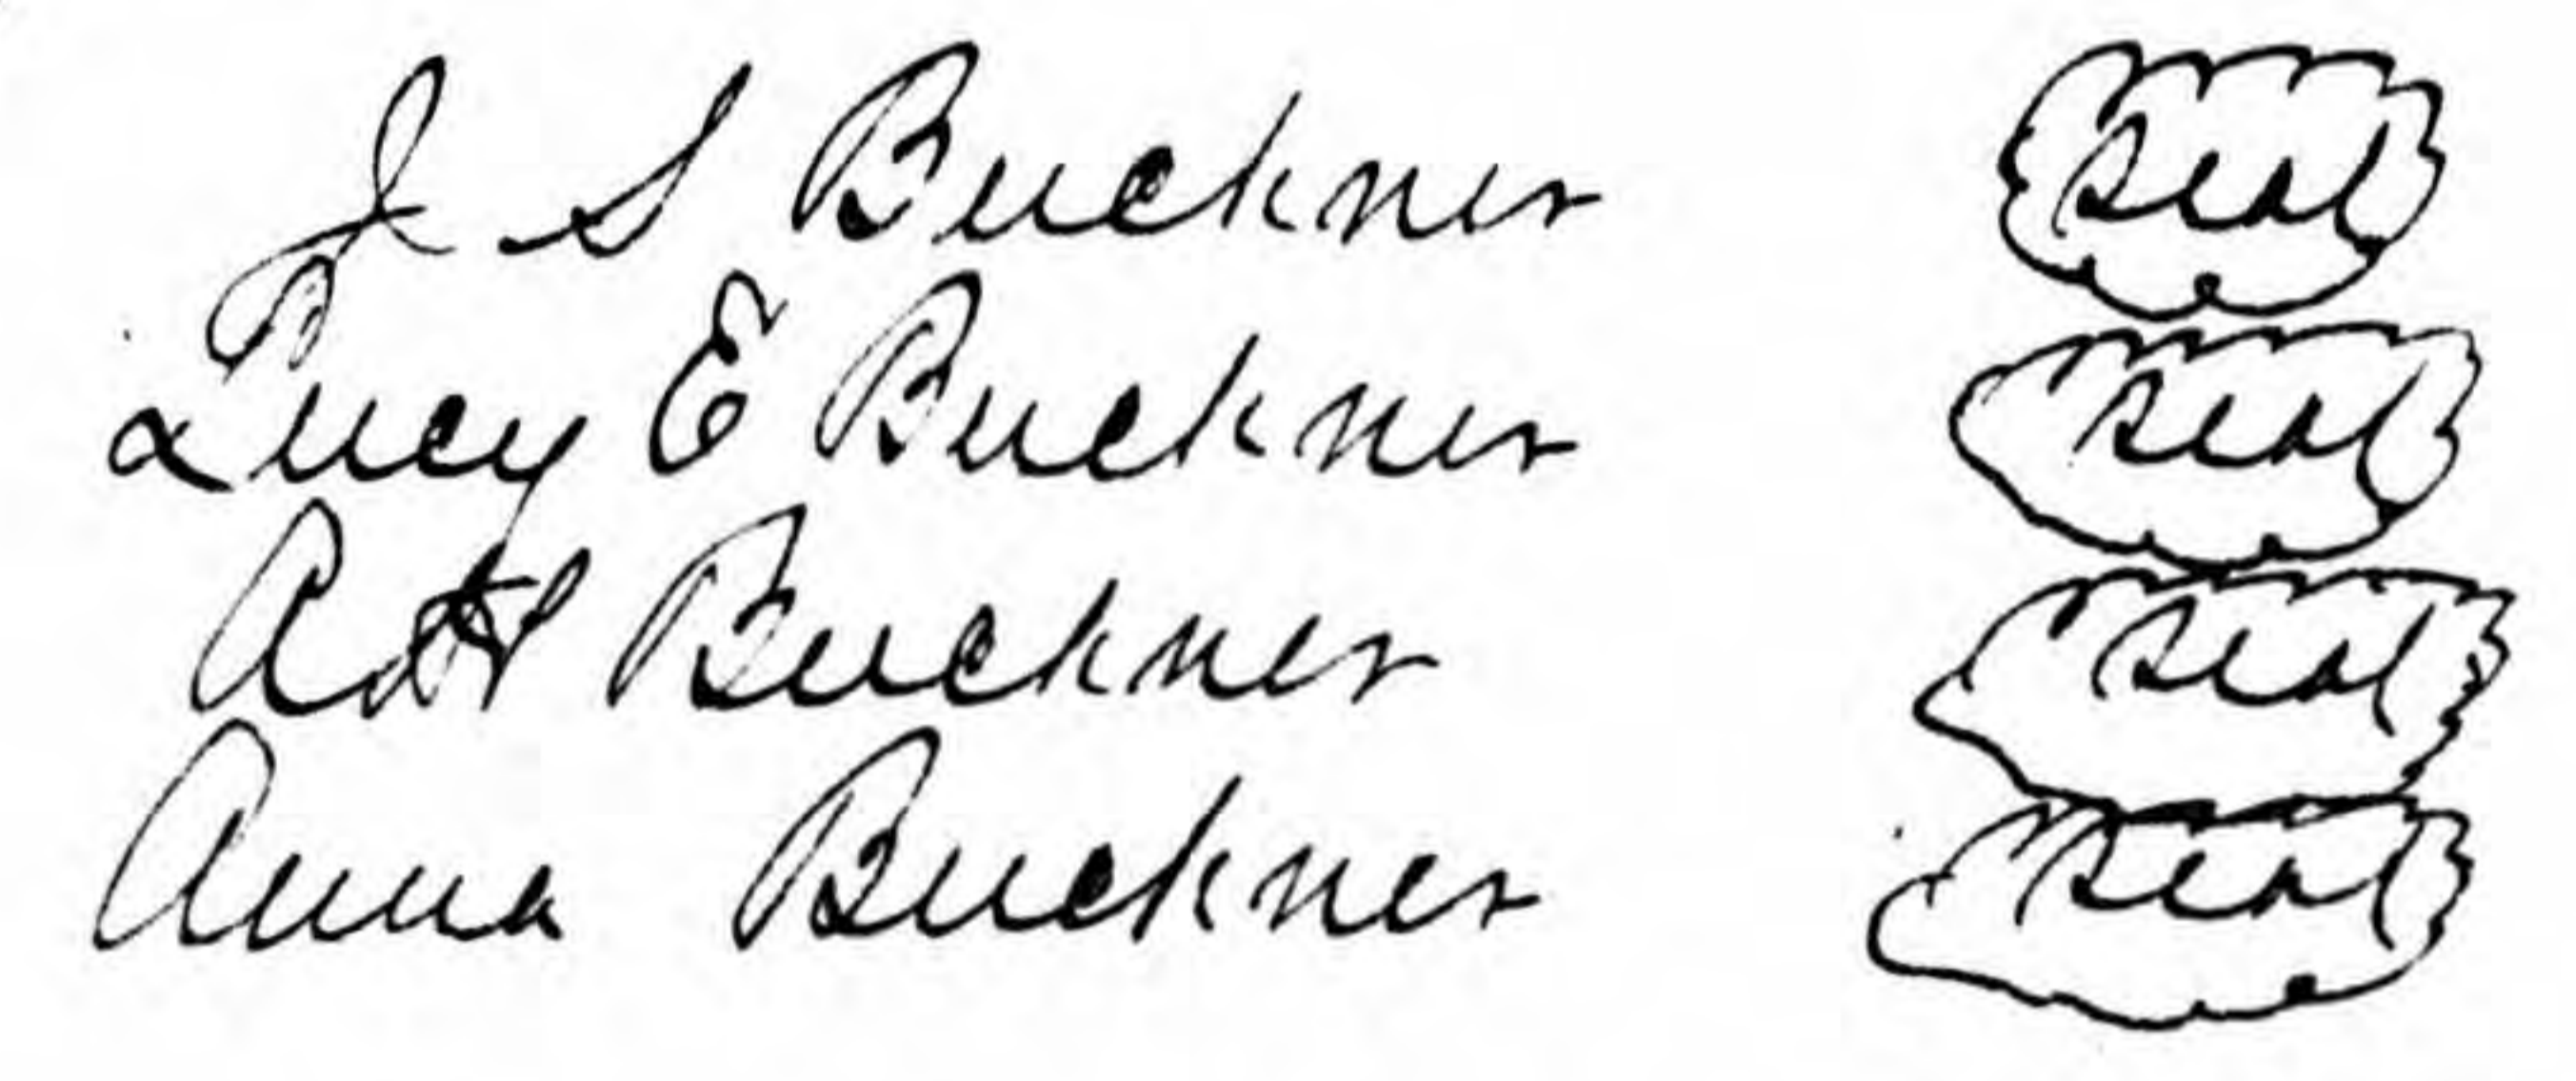 J S Buckner Seal
Lucy E Buckner Seal
A H Buckner Seal
Anna Buckner Seal